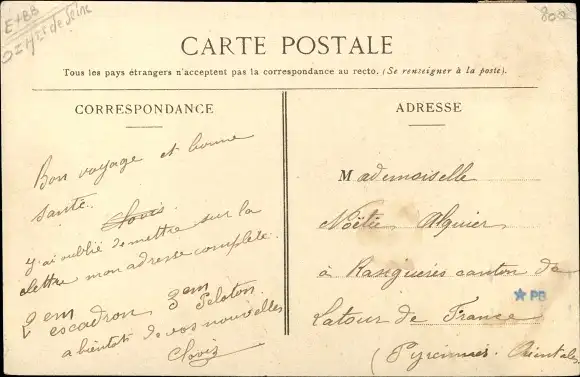 E+BB
800
CARTE POSTALE
Tous les pays étrangers n'acceptent pas la correspondance au recto. (Se renseigner à la poste).
CORRESPONDANCE
Bon voyage et bonne
santé.
Clovis
y.ai oublié de mettre sur la
elettre mon adresse complète.
2em escadron 3em Peloton.
a bientôt de vos nouvelles
Clovis
ADRESSE
Mademoiselle
Noëlie Alquier
à Rasiguères canton de
Latour de France
(Pyrennées-Orientales
★ PB